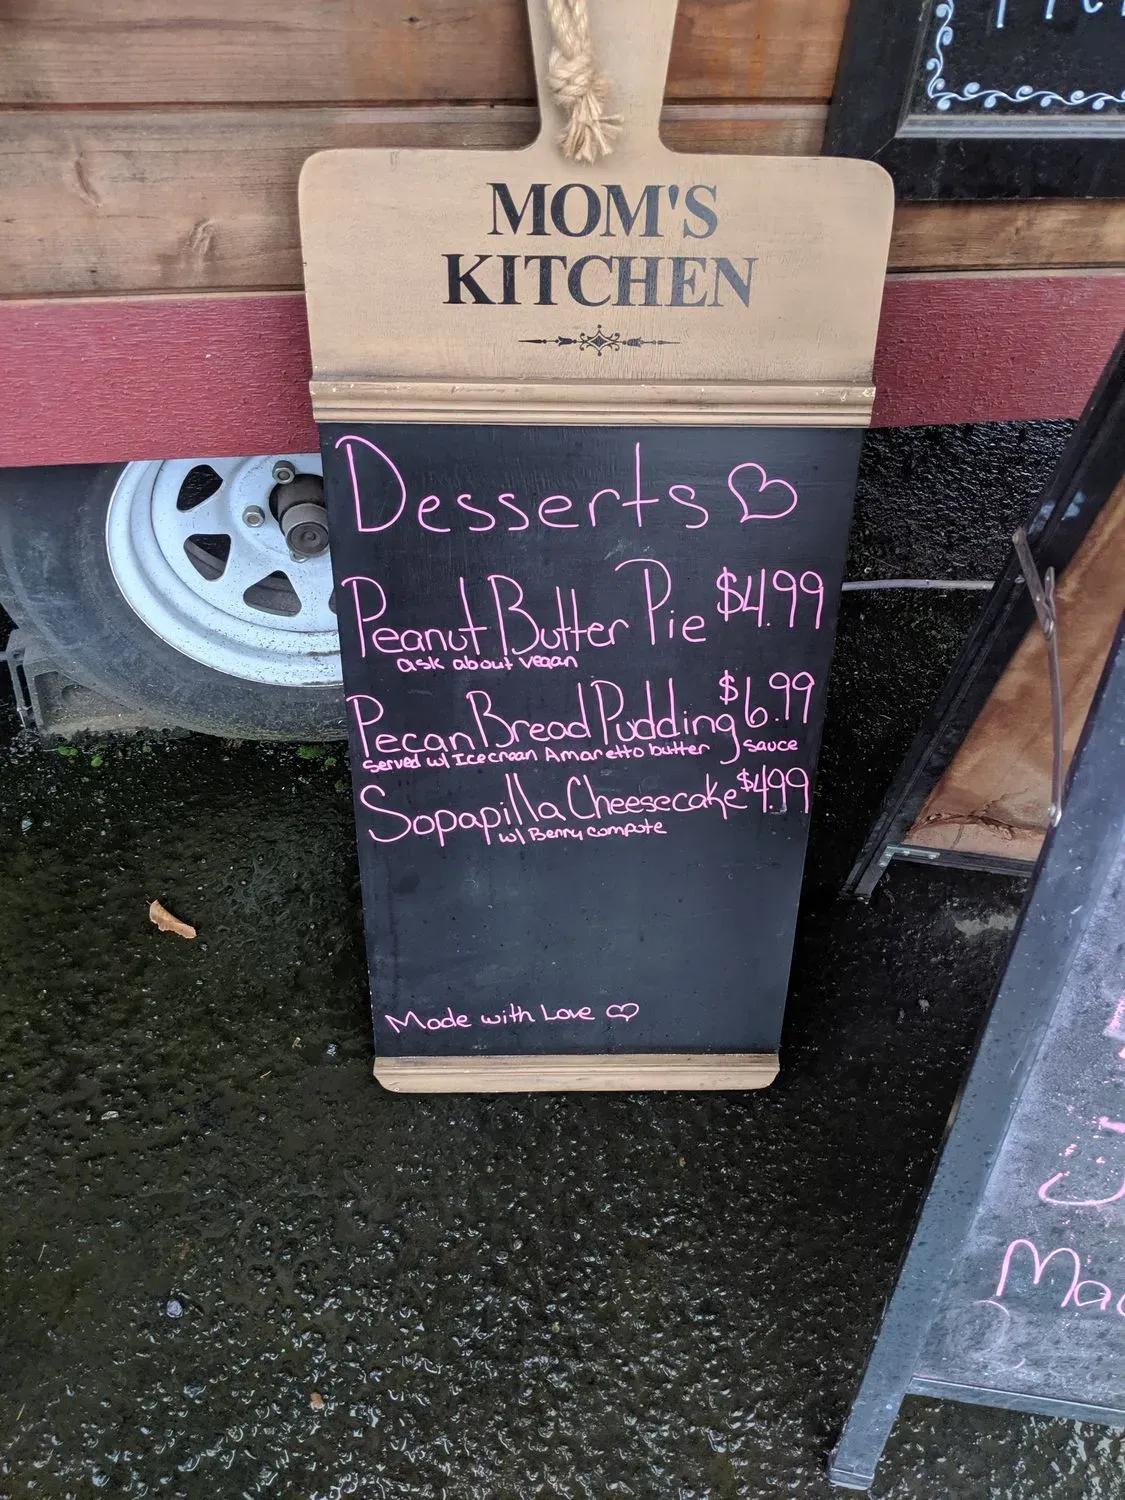 MOM'S
KITCHEN
Desserts
Peanut Butter Pie $4.99
ask about vegan
Pecan Bread Pudding $6.99
served w/ Icecream Amaretto butter sauce
Sopapilla Cheesecake $4.99
w/ Berry compote
Made with Love